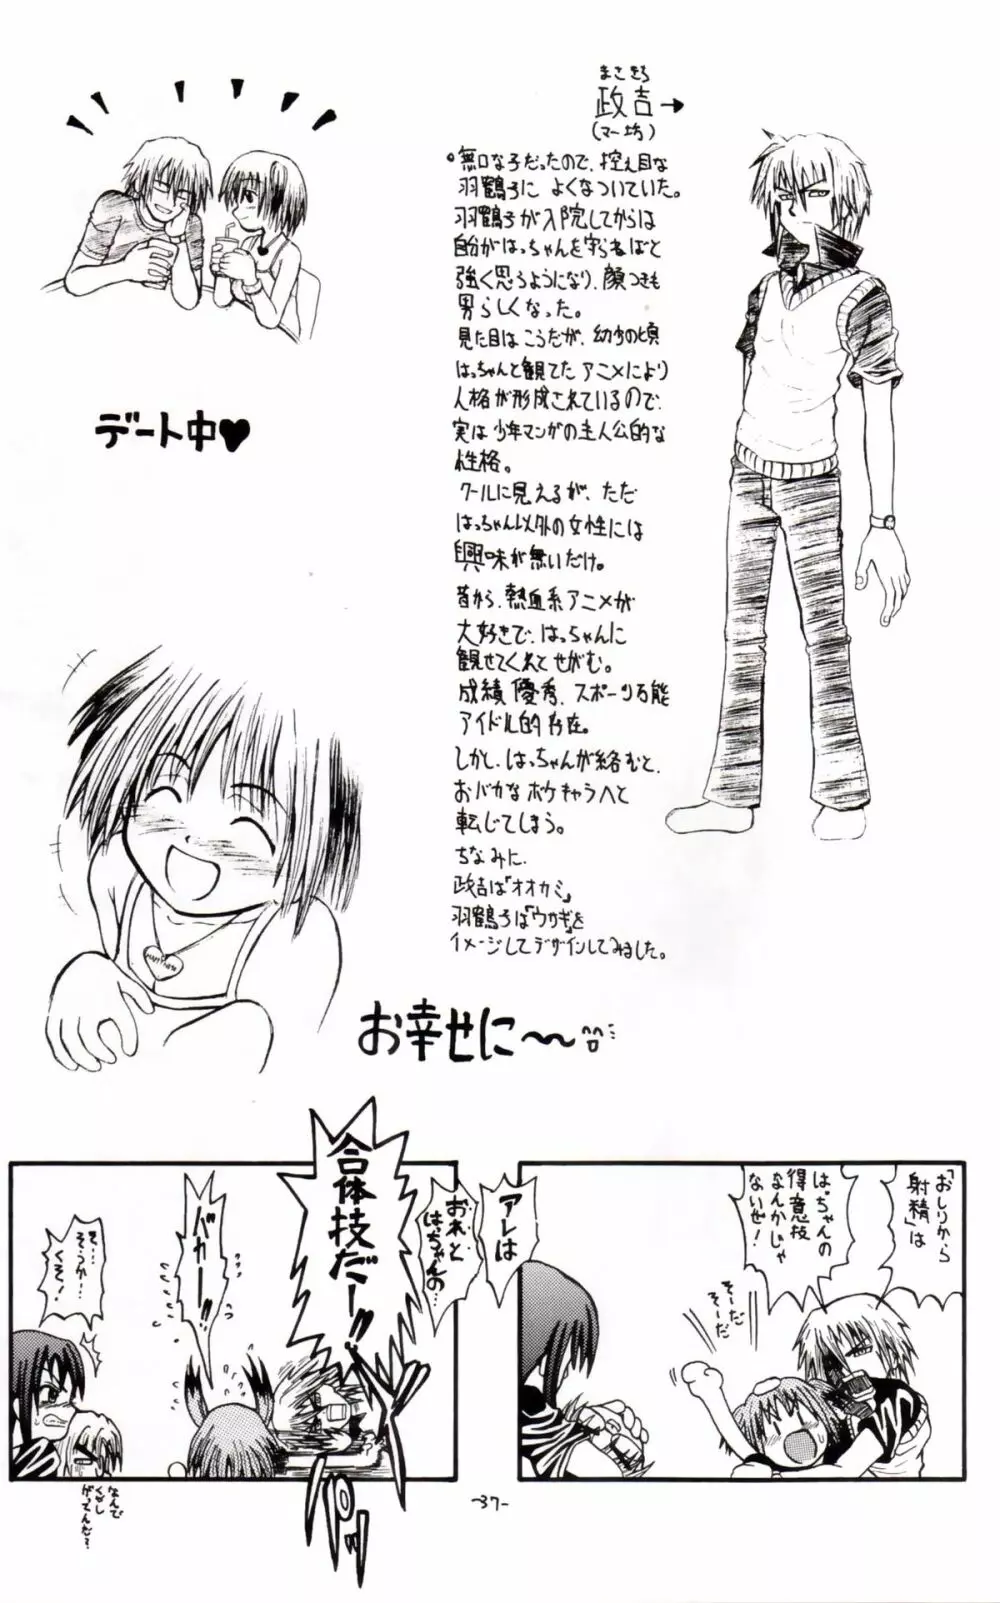 まさきち
政吉→
(マー坊)
。無口な子だったので、控え目な
羽鶴子に よくなついていた。
羽鶴子が入院してからは
自分がはっちゃんを守らねばと
強く思うようになり、顔つきも
男らしくなった。
見た目は こうだが、幼少の頃
はっちゃんと観てた アニメにより
人格が形成されているので、
実は 少年マンガの主人公的な
性格。
クールに見えるが、ただ
はっちゃん以外の女性には
興味が無いだけ。
昔から、熱血系アニメが
大好きで、はっちゃんに
観せてくれとせがむ。
成績優秀、スポーツ万能
アイドル的存在。
しかし、はっちゃんが絡むと、
おバカなボケキャラへと
転じてしまう。
ちなみに、
政吉は『オオカミ』
羽鶴子は『ウサギ』を
イメージしてデザインしてみました。
デート中♥
お幸せに〜
「おしりから
射精」は
はっちゃんの
得意技
なんかじゃ
ないぜ!
そーだ
そーだ
アレは
おれと
はっちゃんの…
合体技だー!!
バカー!!
そ…
そうか…
くそ!
なんで
くやし
がってんだ?
-37-